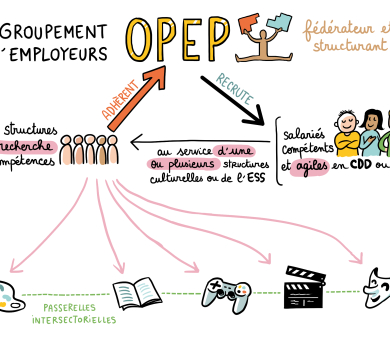 GROUPEMENT
D'EMPLOYEURS
OPEP
fédérateur et
structurant
ADHÈRENT
RECRUTE
structures
recherche
compétences
au service d'une
ou plusieurs structures
culturelles ou de l'ESS
salariés
compétents
et agiles en CDD ou
PASSERELLES
INTERSECTORIELLES